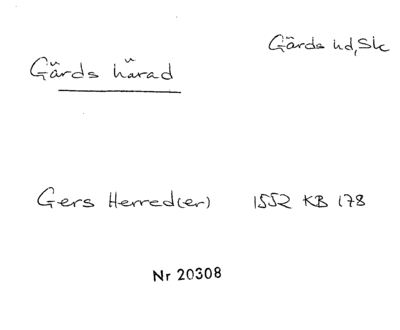 Gärds hd, Sk
Gärds härad
Gers Herred(er) 1552 KB 178
Nr 20308